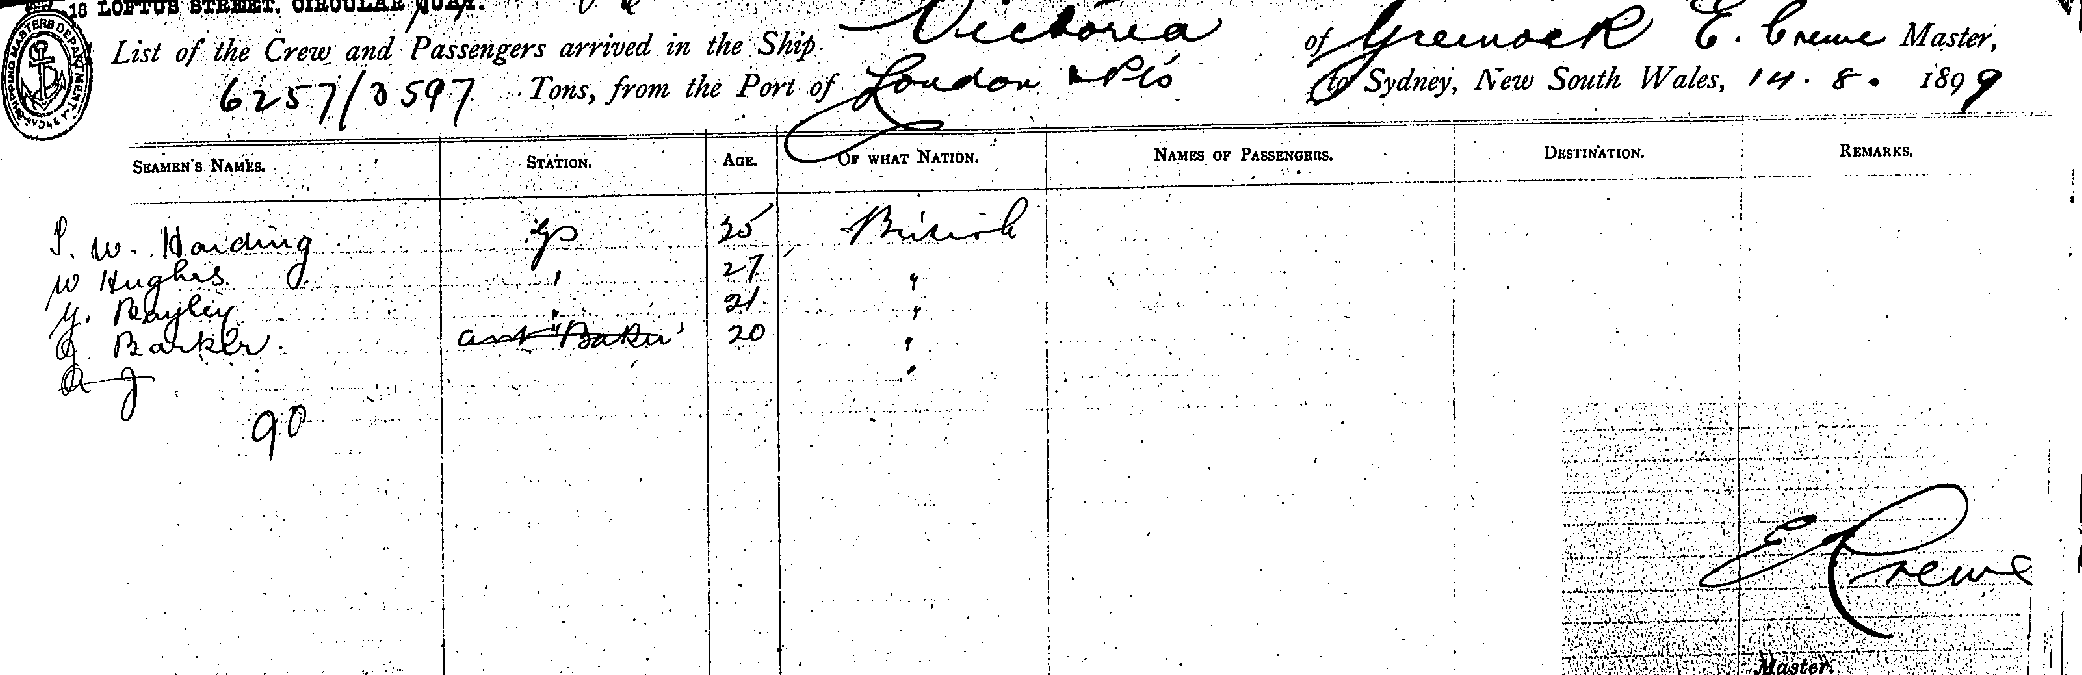 18 LOFTUS STREET, CIRCULAR QUAY.
SHIPPING MASTERS DEPARTMENT
List of the Crew and Passengers arrived in the Ship Victoria of Greenock E. Crewe Master,
6257/3597 Tons, from the Port of London & Pts to Sydney, New South Wales, 14. 8. 1899
SEAMEN'S NAMES. STATION. AGE. OF WHAT NATION. NAMES OF PASSENGERS. DESTINATION. REMARKS.
W. Harding 35 British
W Hughes ' 27 "
Y. Bayley " 21 "
G Barker Baker 20 "
A J "
90
E Crewe
Master.